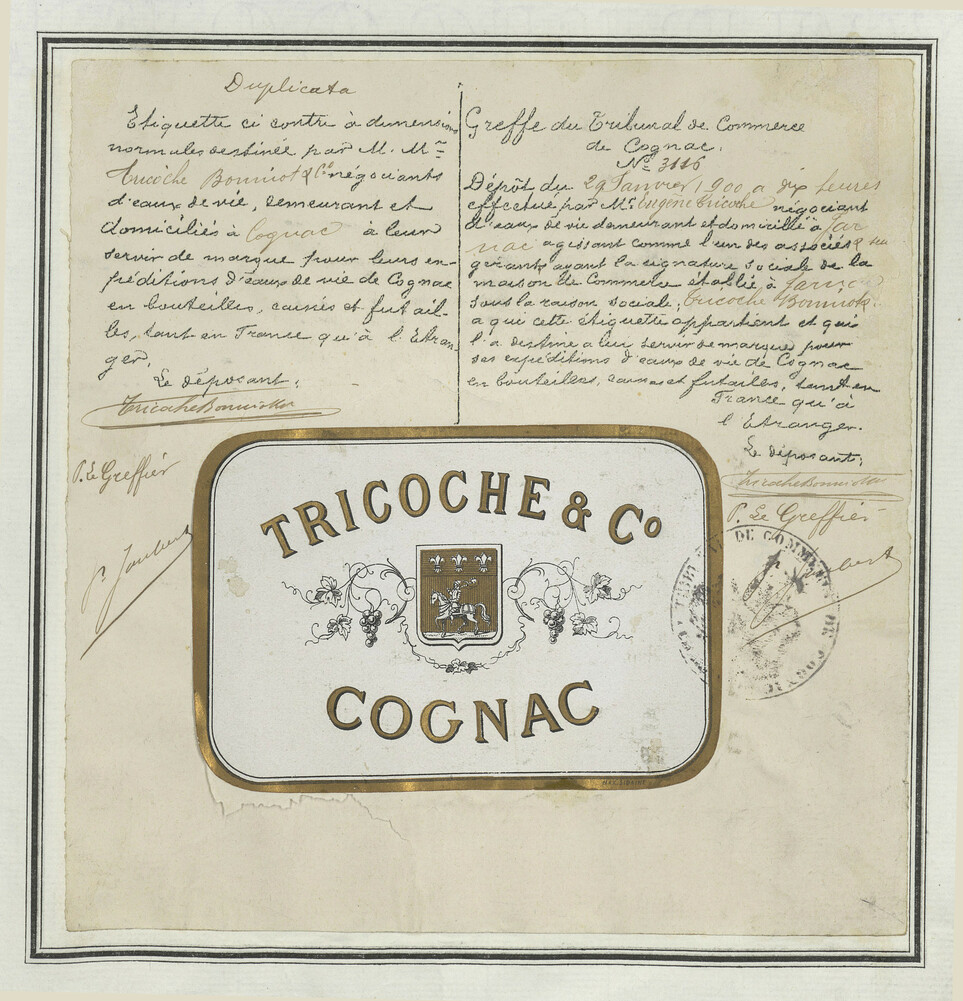 Duplicata
Etiquette ci contre à dimensions
normales destinée par M. Mrs
Tricoche Bonniot & Co négociants
d'eaux de vie, demeurant et
domiciliés à Cognac à leur
servir de marque pour leurs ex-
péditions d'eaux de vie de Cognac
en bouteilles, caisses et futail-
les, tant en France qu'à l'Etran
ger.
Le déposant,
Tricoche Bonniot & Co
P. Le Greffier
Greffe du Tribunal de Commerce
de Cognac.
No 3116
Dépôt du 29 Janvier 1900 a dix heures
effectué par Mr Eugène Tricoche négociant
d'eaux de vie demeurant et domicilié à Jar
nac agissant comme l'un des associés &
gerants ayant la signature sociale de la
maison de Commerce établie à Jarnac
sous la raison sociale, Tricoche Bonniot &
a qui cette étiquette appartient et qui
l'a destine a lui servir de marque pour
ses expéditions d'eaux de vie de Cognac
en bouteilles, caisses et futailles, tant en
France qu'à
l'Etranger.
Le déposant,
Tricoche Bonniot & Co
P. Le Greffier
TRICOCHE & Co
COGNAC
DE COMMERCE DE COGNAC